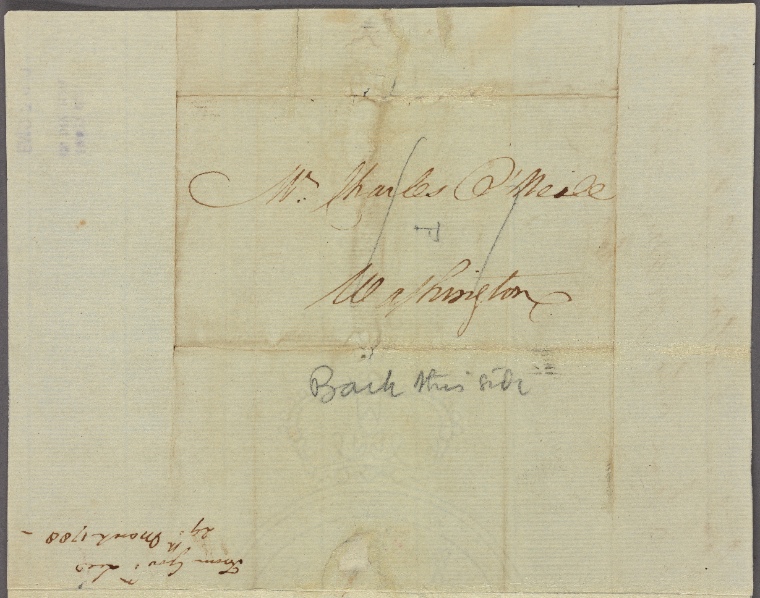 Mr. Charles O'Neale
Washington
Back this side
From Govr. Lee
29th March 1788